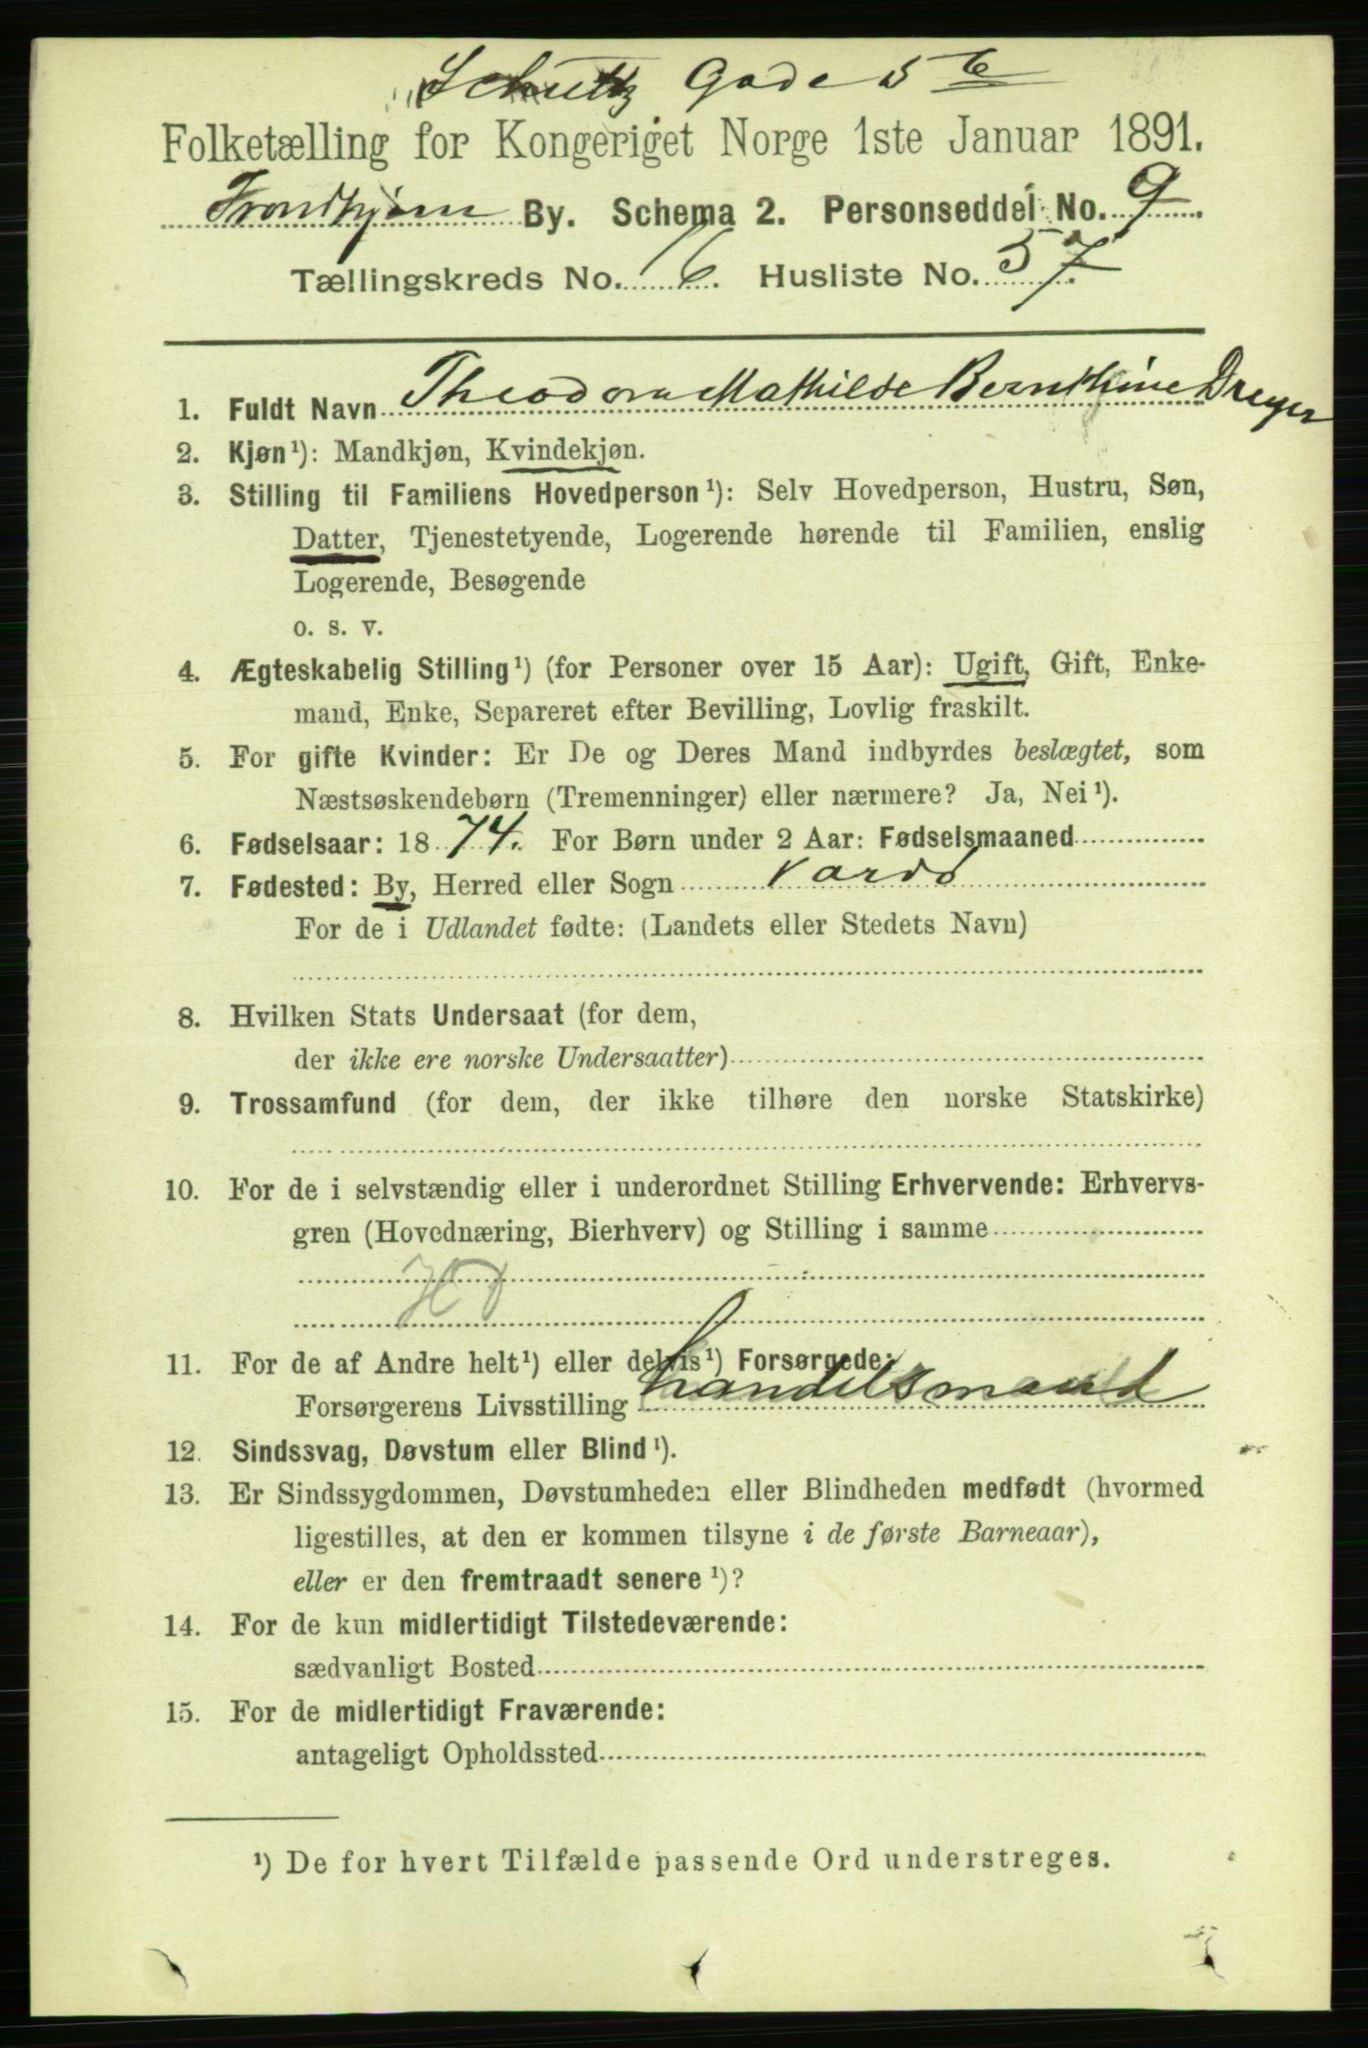 Schultz Gade 5 b
Folketælling for Kongeriget Norge 1ste Januar 1891.
Trondhjem By. Schema 2. Personseddel No. 9
Tællingskreds No. 6. Husliste No. 57.
1. Fuldt Navn Theodora Mathilde Bernthine Dreyer
2. Kjøn¹): Mandkjøn, Kvindekjøn.
3. Stilling til Familiens Hovedperson¹): Selv Hovedperson, Hustru, Søn,
Datter, Tjenestetyende, Logerende hørende til Familien, enslig
Logerende, Besøgende
o. s. v.
4. Ægteskabelig Stilling¹) (for Personer over 15 Aar): Ugift, Gift, Enke-
mand, Enke, Separeret efter Bevilling, Lovlig fraskilt.
5. For gifte Kvinder: Er De og Deres Mand indbyrdes beslægtet, som
Næstsøskendebørn (Tremenninger) eller nærmere? Ja, Nei¹).
6. Fødselsaar: 1874. For Børn under 2 Aar: Fødselsmaaned
7. Fødested: By, Herred eller Sogn Vardö
For de i Udlandet fødte: (Landets eller Stedets Navn)
8. Hvilken Stats Undersaat (for dem,
der ikke ere norske Undersaatter)
9. Trossamfund (for dem, der ikke tilhøre den norske Statskirke)
10. For de i selvstændig eller i underordnet Stilling Erhvervende: Erhvervs-
gren (Hovednæring, Bierhverv) og Stilling i samme
11. For de af Andre helt¹) eller delvis¹) Forsørgede:
Forsørgerens Livsstilling handelsmand
12. Sindssvag, Døvstum eller Blind¹).
13. Er Sindssygdommen, Døvstumheden eller Blindheden medfødt (hvormed
ligestilles, at den er kommen tilsyne i de første Barneaar),
eller er den fremtraadt senere¹)?
14. For de kun midlertidigt Tilstedeværende:
sædvanligt Bosted
15. For de midlertidigt Fraværende:
antageligt Opholdssted
¹) De for hvert Tilfælde passende Ord understreges.